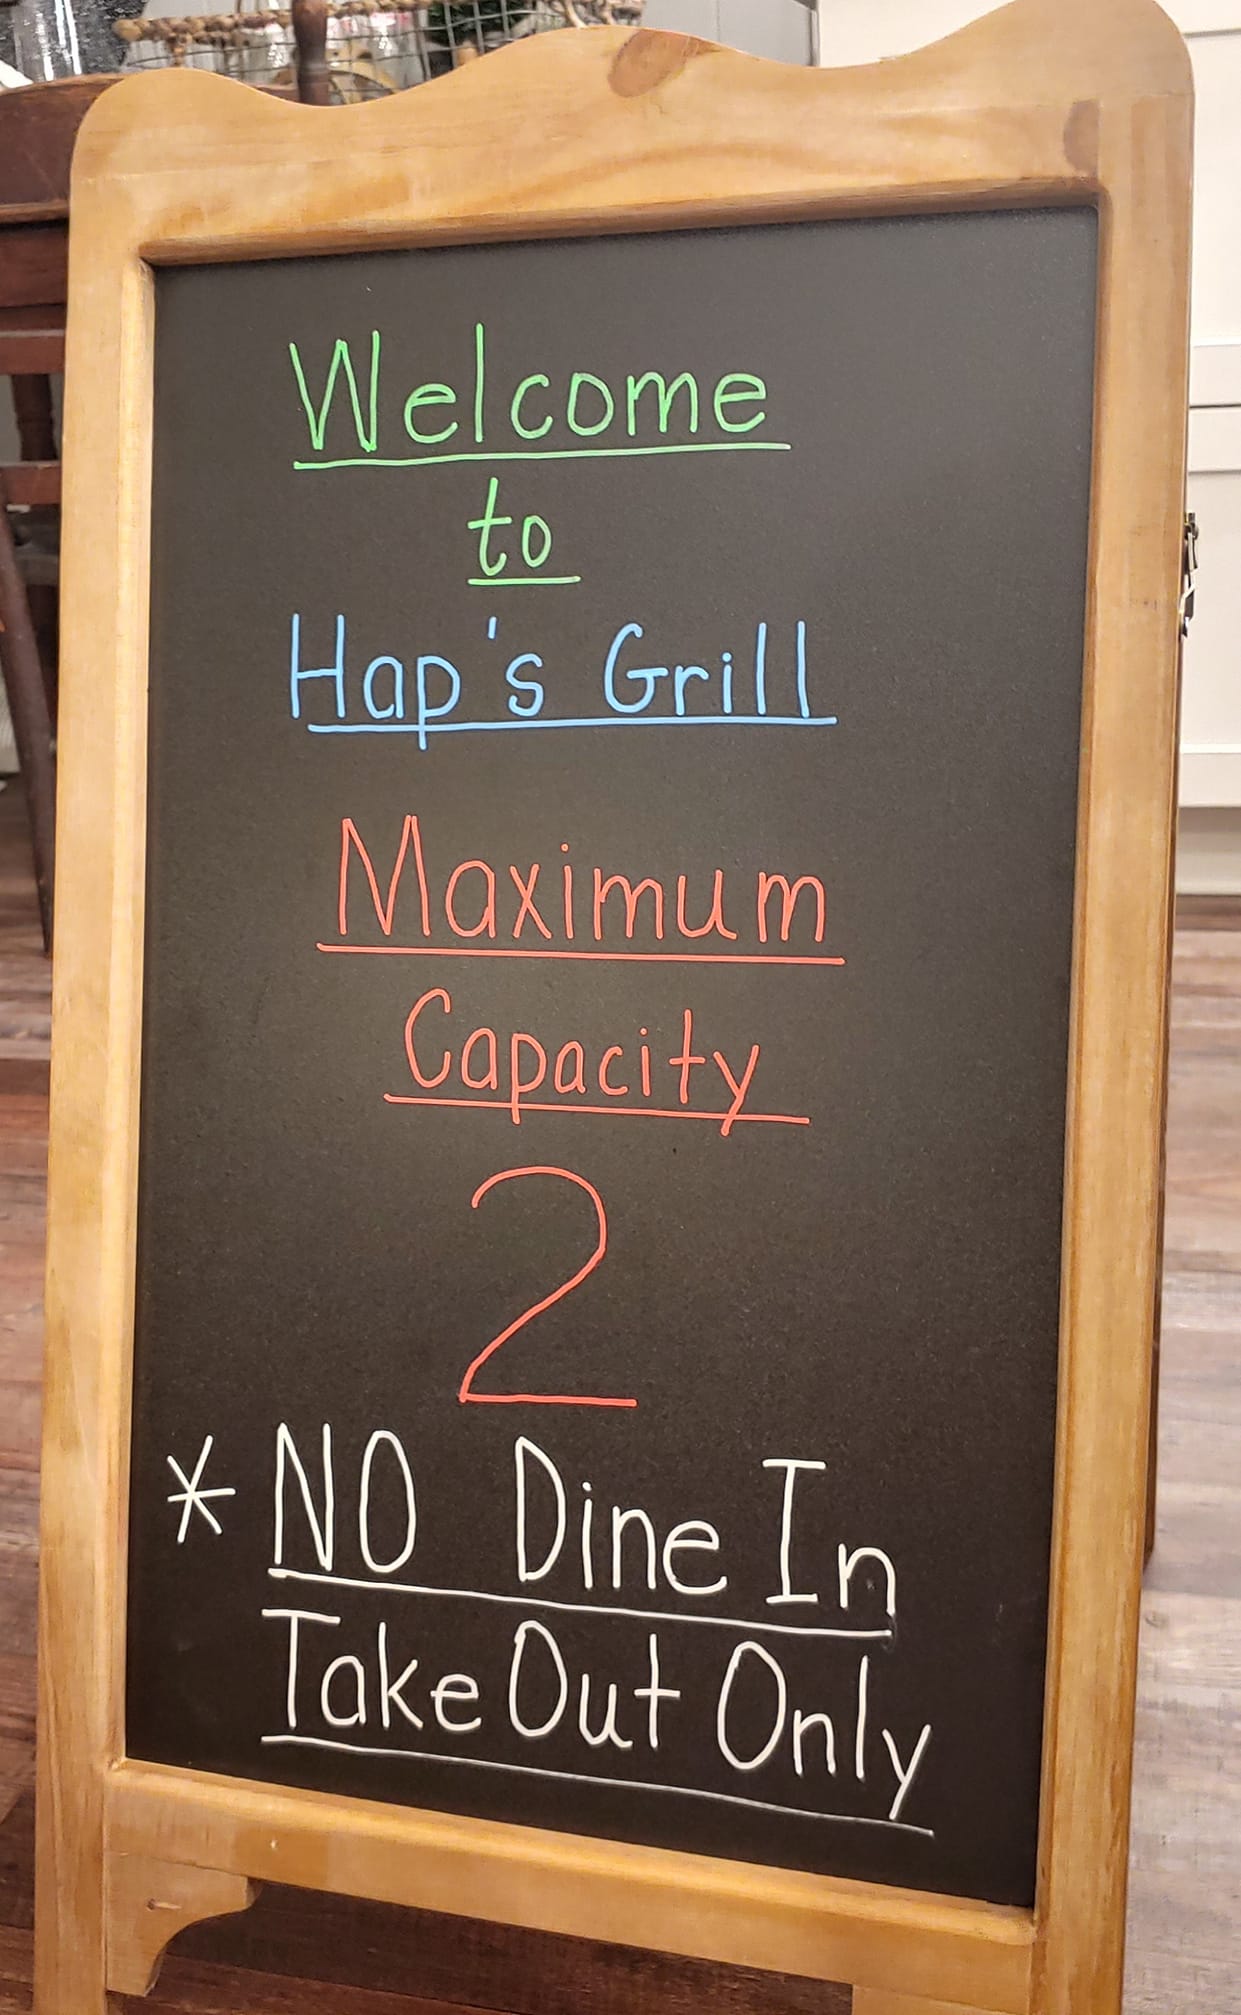 Welcome
to
Hap's Grill
Maximum
Capacity
2
* NO Dine In
Take Out Only